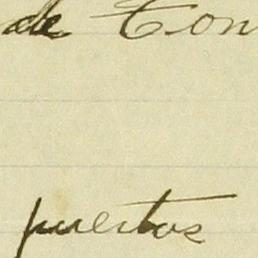 de Con
puertos